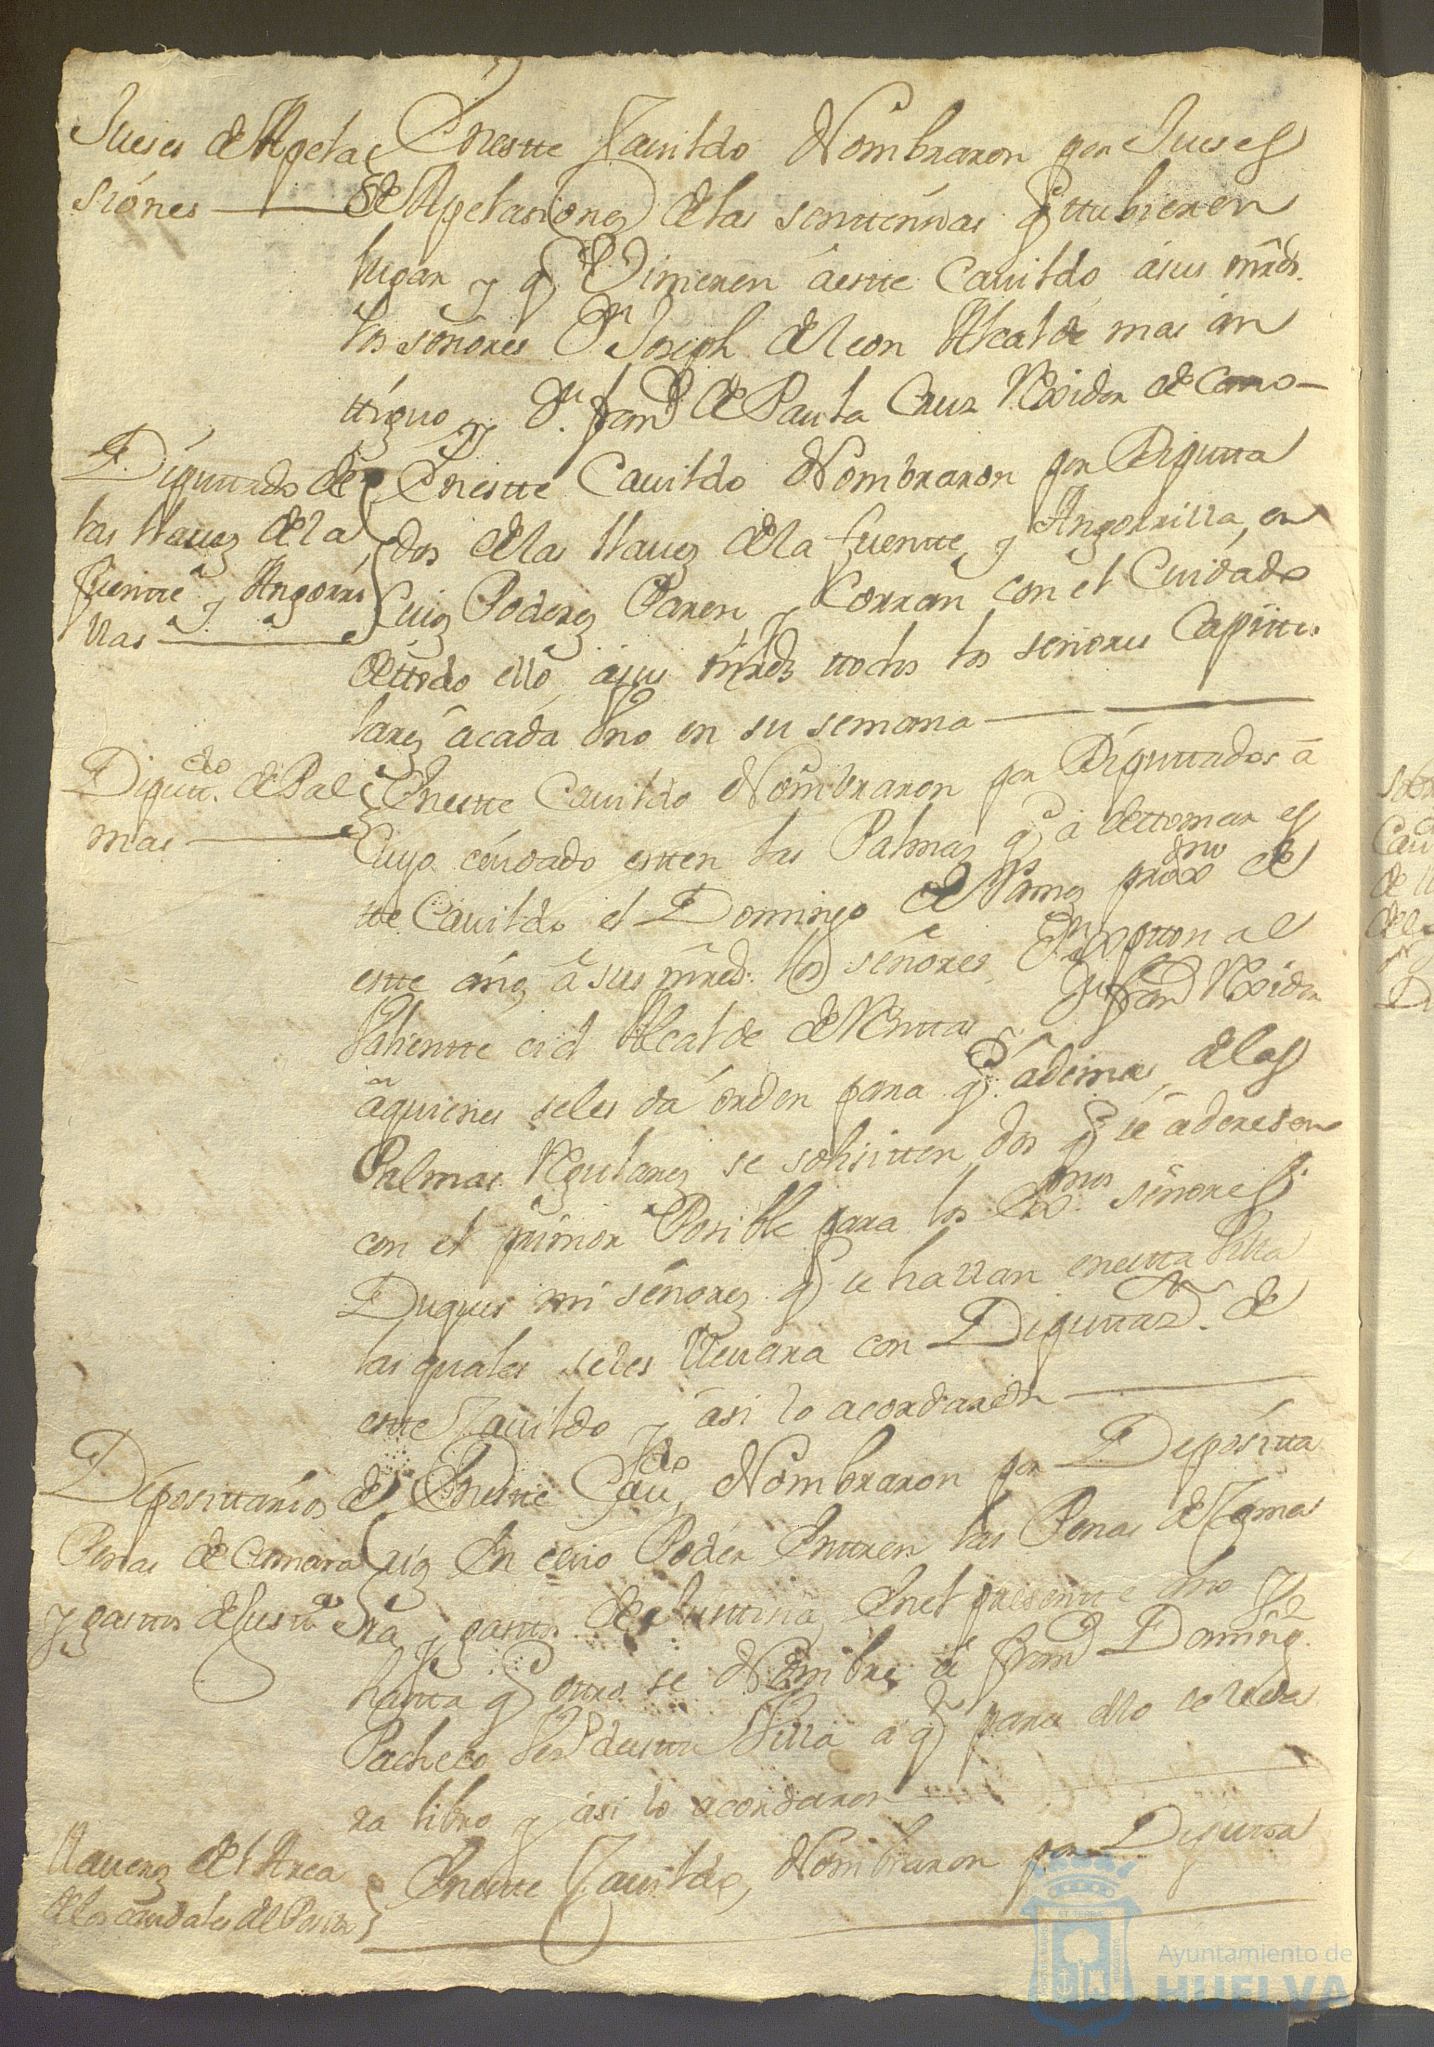 Jueses de Apela
siones
En estte Cavildo Nombraron por Jueses
de Apelasiones de las senttensias q ttubieren
lugar y q Vinieren â estte Cavildo, â sus mrds.
los señores Dn Joseph de Leon Alcalde mas ân
ttiguo y Dn. Franco de Paula Cruz Rexidor Decano
Diputtado de
las llaves de la
fuentte y Angorri
llas
En estte Cavildo Nombraron por Diputta
dos de las llaves de la fuentte y Angorrilla, en
Cuios Poderes Paren y Corran con el Cuidado
de ttodo ello, â sus mrds ttodos los señores Capittu
lares â cada Uno en su semana
Diputtdo. de Pal
mas
En estte Cavildo Nombraron por Diputtados â
Cuyo cuidado estten las Palmas q â de ttomar es
tte Cavildo el Domingo de Ramos proxmo de
estte año, â sus mrds. los señores Dn
Valientte Alcalde de Franco Rexidor
â quienes seles dâ orden para q. âdemas, delas
Palmas Regulares se solisitten dos q se aderesen
con el primor Posible para los Exmos señores
Duques mi señores q se hallan en estta Villa
las quales seles llevara con Diputtazn. de
estte Cavildo y âsi lo acordaron
Deposittarios de
Penas de Camara
y gasttos de Justta
En estte Cavdo Nombraron por Depositta
rio En cuio Poder Enttren las Penas de Cama
ra y gasttos de Justtisia, En el presentte año y
hastta q ottro se Nombre, â Franco Doming.
Pacheco Vezo de estta Villa â q para ello se le da
ra libro y âsi lo acordaron
Llaveros del Arca
de los caudales del Posito
En estte Cavildo, Nombraron por Diputta
Ayuntamiento de
HUELVA